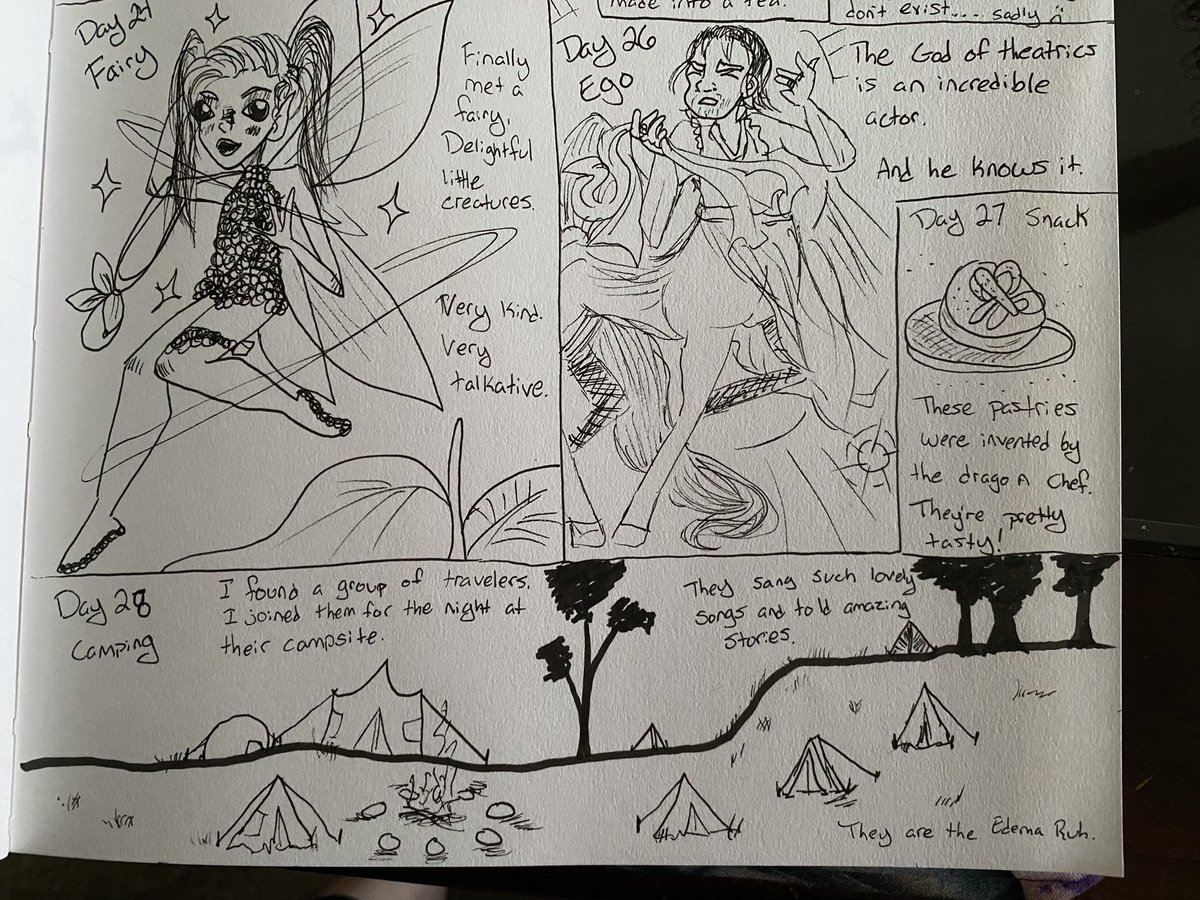 made into a tea.
don't exist.... sadly
Day 24
Fairy
Finally
met a
fairy.
Delightful
little
creatures.
Very kind.
Very
talkative.
Day 26
Ego
The God of theatrics
is an incredible
actor.
And he knows it.
Day 27 Snack
These pastries
were invented by
the dragon chef.
They're pretty
tasty!
Day 28
Camping
I found a group of travelers.
I joined them for the night at
their campsite.
They sang such lovely
songs and told amazing
stories.
They are the Edema Ruh.